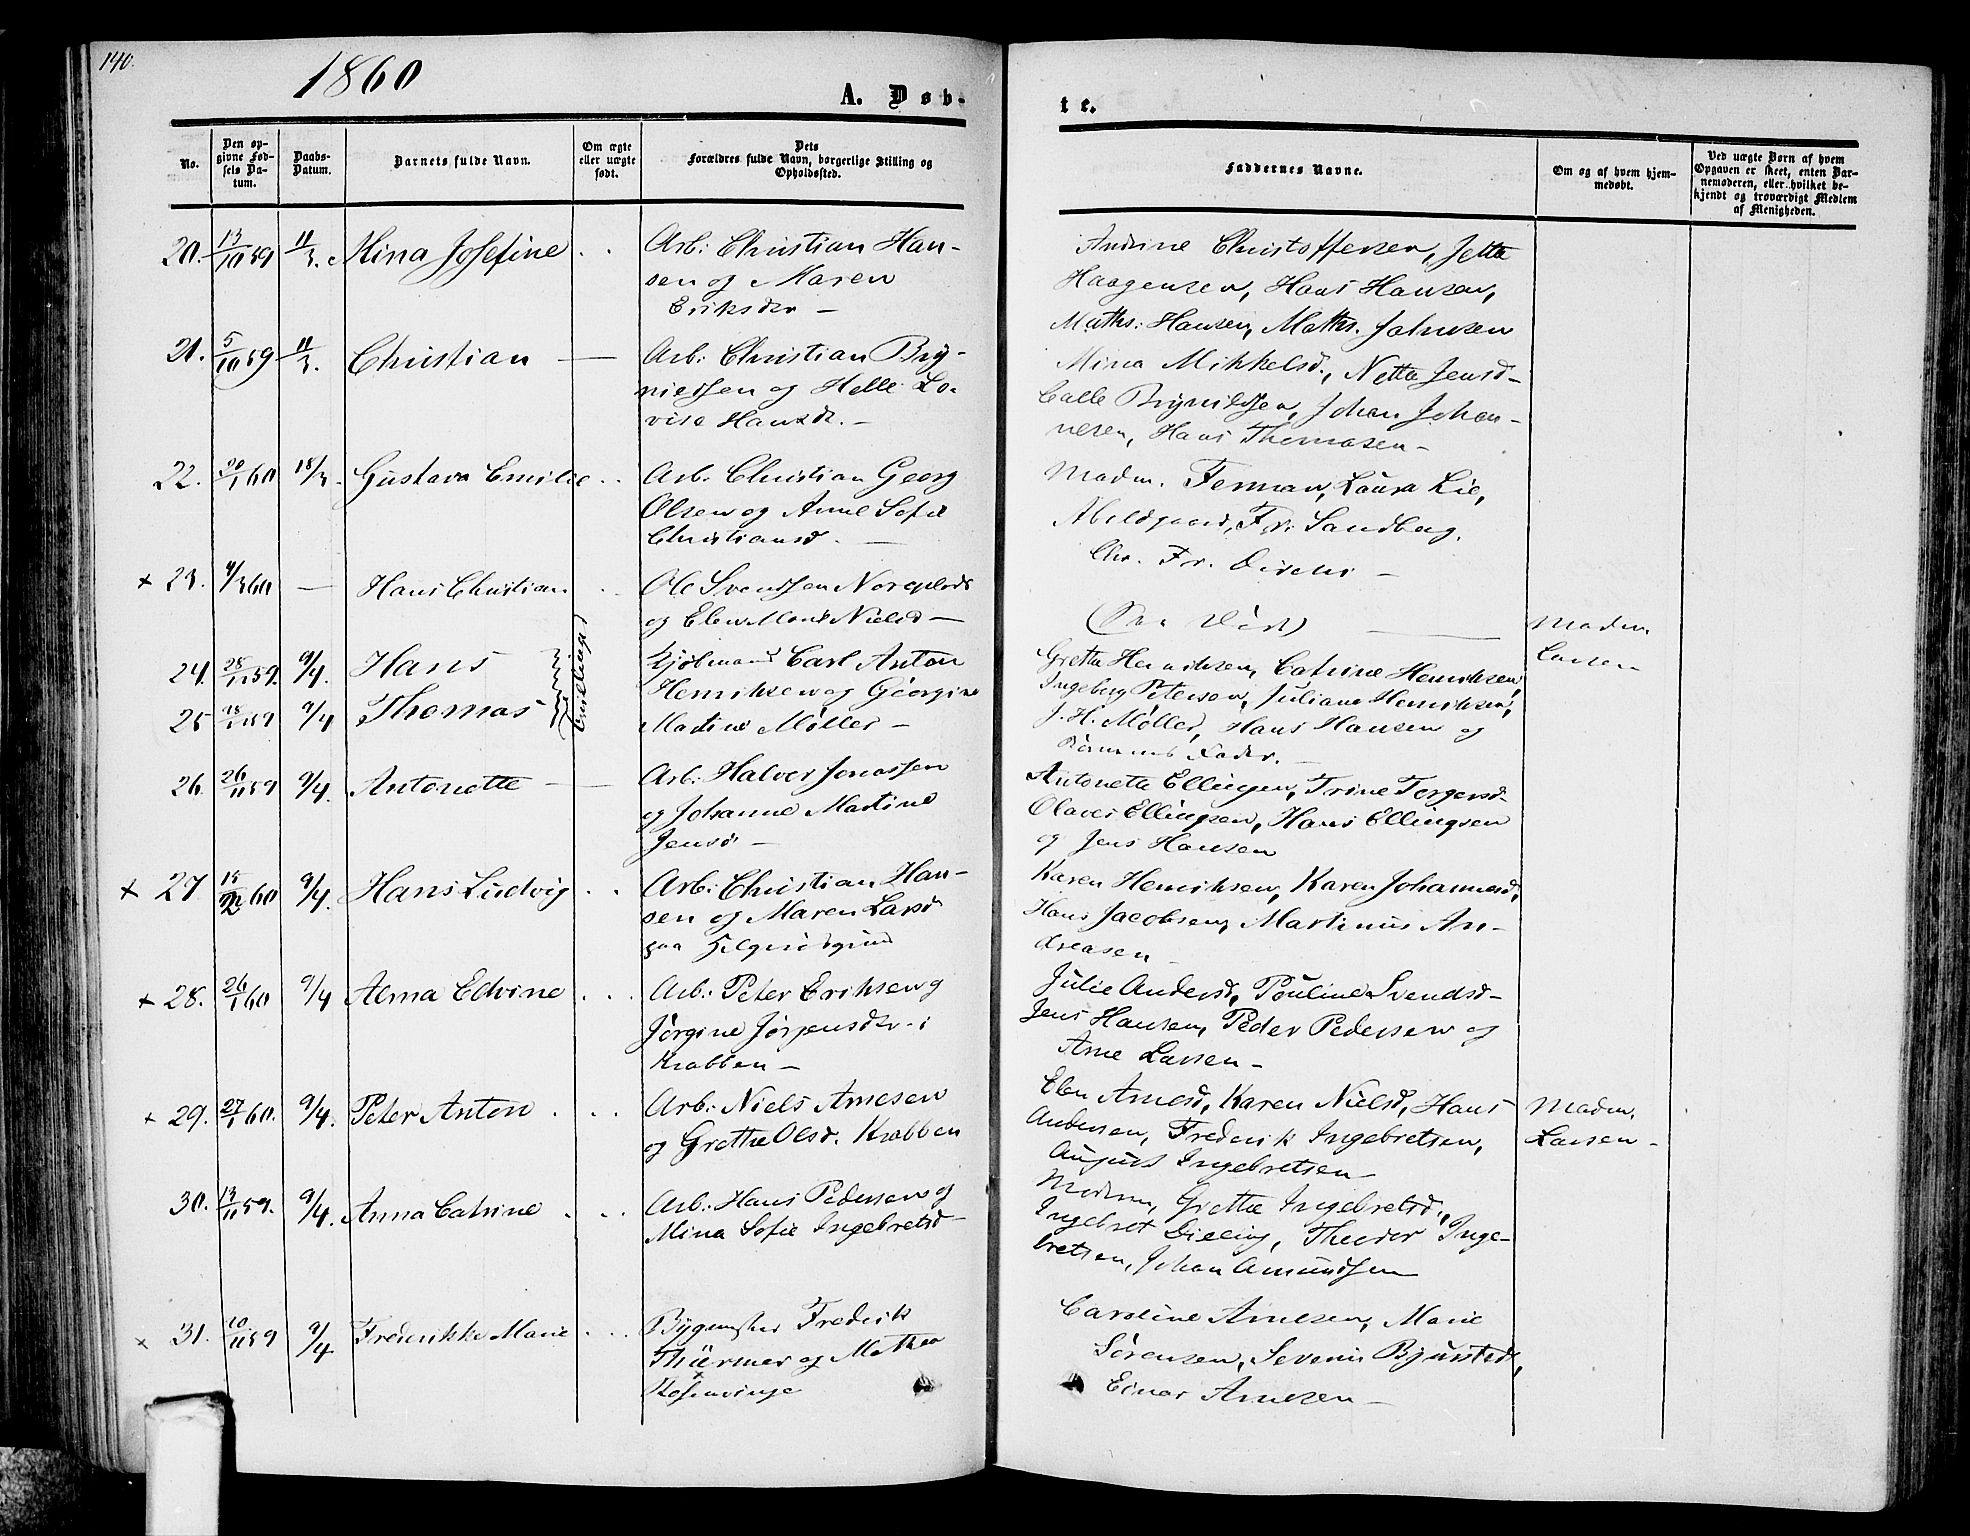 140.
1860
A. Døb-
te.
No.
Den op-
givne Fød-
sels Da-
tum.
Daabs-
Datum.
Barnets fulde Navn.
Om ægte
eller uægte
født.
Dets
Forældres fulde Navn, borgerlige Stilling og
Opholdssted.
Faddernes Navne.
Om og af hvem hjem-
medøbt.
Ved uægte Børn af hvem
Opgaven er skeet, enten Bar-
nemoderen, eller hvilket be-
kjendt og troværdigt Medlem
af Menigheden.
20. 13/10 59 11/3. Mina Josefine
Arb: Christian Han-
sen og Maren
Eriksdr —
Andrine Christoffersen, Jette
Haagensen, Hans Hansen,
Maths: Hansen, Maths. Johnsen
21. 5/10 59 11/3. Christian —
Arb: Christian Bry-
nielssen og Helle Lo-
vise Hansdr. —
Mina Mikkelsd., Netta Jensd-
Calle Brynildsen, Johan Johan-
nesen, Hans Thomasen —
22. 20/1 60 18/3. Gustava Emilie
Arb. Christian Georg
Olsen og Anne Sofie
Christiansd. —
Madm. Ferman, Laura Lie,
Abildgaard, Fr. Sandberg,
Chr. Fr.
× 23. 4/3 60 — Hans Christian
Ole Svendsen
og Elen Marie Nielsd —
Madm.
Larsen
24. 28/11 59. 9/4. Hans
25 28/11 59 9/4 Thomas
Tvillinger
Kjøbmand Carl Anton
Henriksen og Georgine
Martine Møller —
Grethe Henriksen, Catrine Henriksen,
Ingeborg Petersen, Juliane Henriksen,
J. H. Møller, Hans Hansen og
Børnenes Fader. —
26. 26/11 59 9/4. Antonette —
Arb: Halvor Jonassen
og Johanne Martine
Jensd —
Antonette Ellingsen, Trine Torgersd-
Olaves Ellingsen, Hans Ellingsen
og Jens Hansen
× 27 15/2 60 9/4. Hans Ludvig
Arb: Christian Han-
sen og Maren Larsd
paa
Karen Henriksen, Karen Johannesd,
Hans Jacobsen, Martinus An-
dreasen —
× 28. 26/1 60 9/4 Alma Edvine
Arb: Peter Eriksen og
Jørgine Jørgensdr. i
Krabben —
Julie Andersd, Pouline Svendsd-
Jens Hansen, Peder Pedersen og
Arne Larsen —
× 29. 27/1 60. 9/4. Peter Anton
Arb: Niels Arnesen
og Grethe Olsd. Krabben
Elen Arnesd, Karen Nielsd, Hans
Andersen, Frederik Ingebretsen,
August Ingebretsen —
Madm.
Larsen —
30. 13/11 59. 9/4. Anna Catrine
Arb: Hans Pedersen og
Mina Sofie Ingebretsd —
Modren, Grethe Ingebretsd.,
Ingebret Dilling, Theodor Inge-
bretsen, Johan Amundsen
× 31. 10/11 59 9/4 Frederikke Marie
Bygmester Frederik
Thürmer og Mathea
Rosenvinge
Caroline Arnesen, Marie
Sørensen, Severin Bjunstedt,
Einar Arnesen —